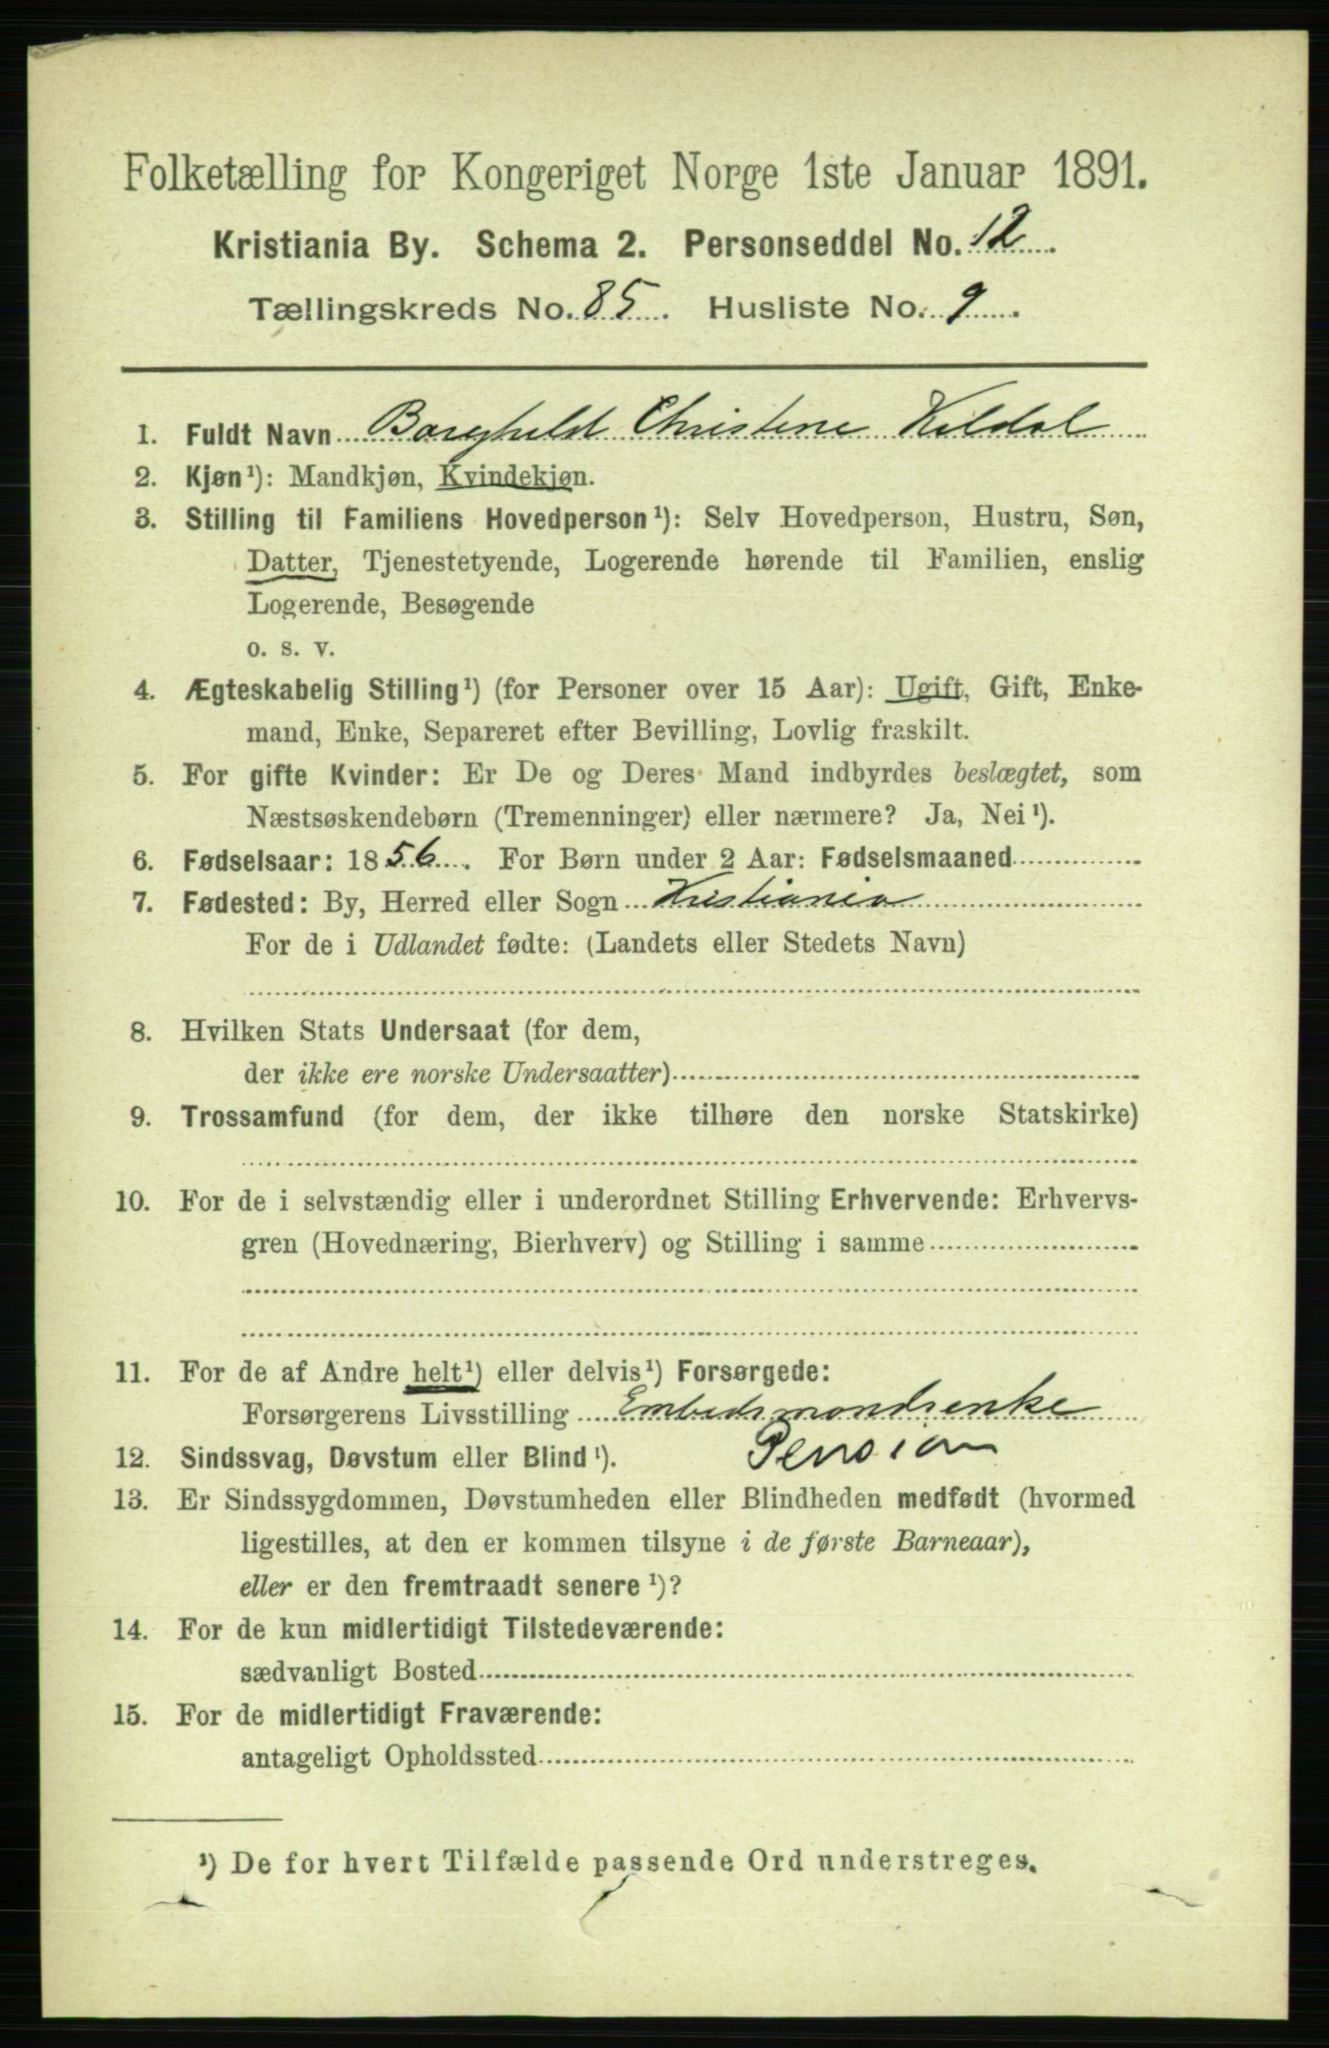 Folketælling for Kongeriget Norge 1ste Januar 1891.
Kristiania By. Schema 2. Personseddel No. 12
Tællingskreds No. 85. Husliste No. 9.
1. Fuldt Navn Borghild Christine Kildal
2. Kjøn¹): Mandkjøn, Kvindekjøn.
3. Stilling til Familiens Hovedperson¹): Selv Hovedperson, Hustru, Søn,
Datter, Tjenestetyende, Logerende hørende til Familien, enslig
Logerende, Besøgende
o. s. v.
4. Ægteskabelig Stilling¹) (for Personer over 15 Aar): Ugift, Gift, Enke-
mand, Enke, Separeret efter Bevilling, Lovlig fraskilt.
5. For gifte Kvinder: Er De og Deres Mand indbyrdes beslægtet, som
Næstsøskendebørn (Tremenninger) eller nærmere? Ja, Nei¹).
6. Fødselsaar: 1856. For Børn under 2 Aar: Fødselsmaaned
7. Fødested: By, Herred eller Sogn Kristiania
For de i Udlandet fødte: (Landets eller Stedets Navn)
8. Hvilken Stats Undersaat (for dem,
der ikke ere norske Undersaatter)
9. Trossamfund (for dem, der ikke tilhøre den norske Statskirke)
10. For de i selvstændig eller i underordnet Stilling Erhvervende: Erhvervs-
gren (Hovednæring, Bierhverv) og Stilling i samme
11. For de af Andre helt¹) eller delvis¹) Forsørgede:
Forsørgerens Livsstilling Embedsmandsenke
12. Sindssvag, Døvstum eller Blind¹). Pension
13. Er Sindssygdommen, Døvstumheden eller Blindheden medfødt (hvormed
ligestilles, at den er kommen tilsyne i de første Barneaar),
eller er den fremtraadt senere¹)?
14. For de kun midlertidigt Tilstedeværende:
sædvanligt Bosted
15. For de midlertidigt Fraværende:
antageligt Opholdssted
¹) De for hvert Tilfælde passende Ord understreges.